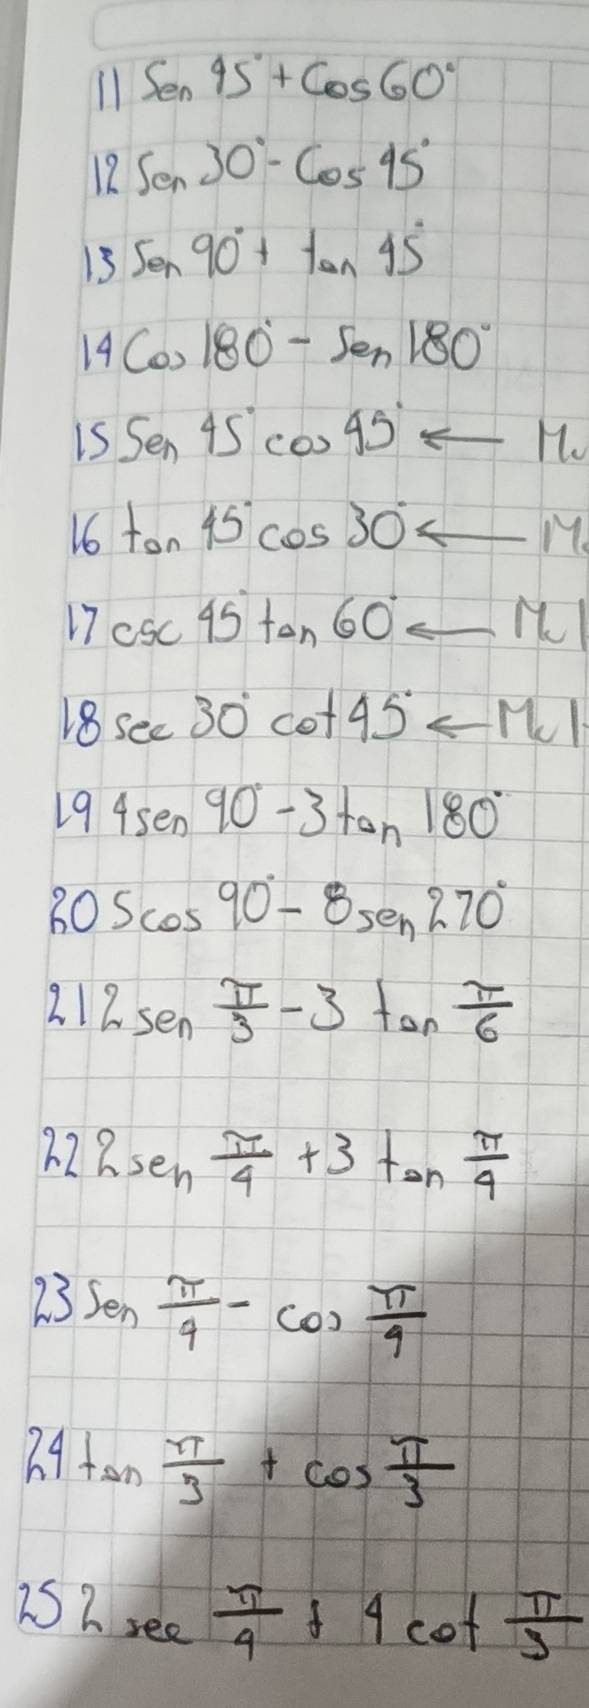 11 Sen 45° + Cos 60°
12 Sen 30° - Cos 45°
13 Sen 90° + tan 45°
14 Cos 180° - Sen 180°
15 Sen 45° cos 45° ←
16 tan 45° cos 30° ←
17 csc 45° tan 60° ←
18 sec 30° cot 45° ←
19 4sen 90° - 3 tan 180°
20 5cos 90° - 8sen 270°
21 2 sen π/3 - 3 tan π/6
22 2 sen π/4 + 3 tan π/4
23 Sen π/4 - cos π/4
24 tan π/3 + cos π/3
25 2 sec π/4 + 4 cot π/3